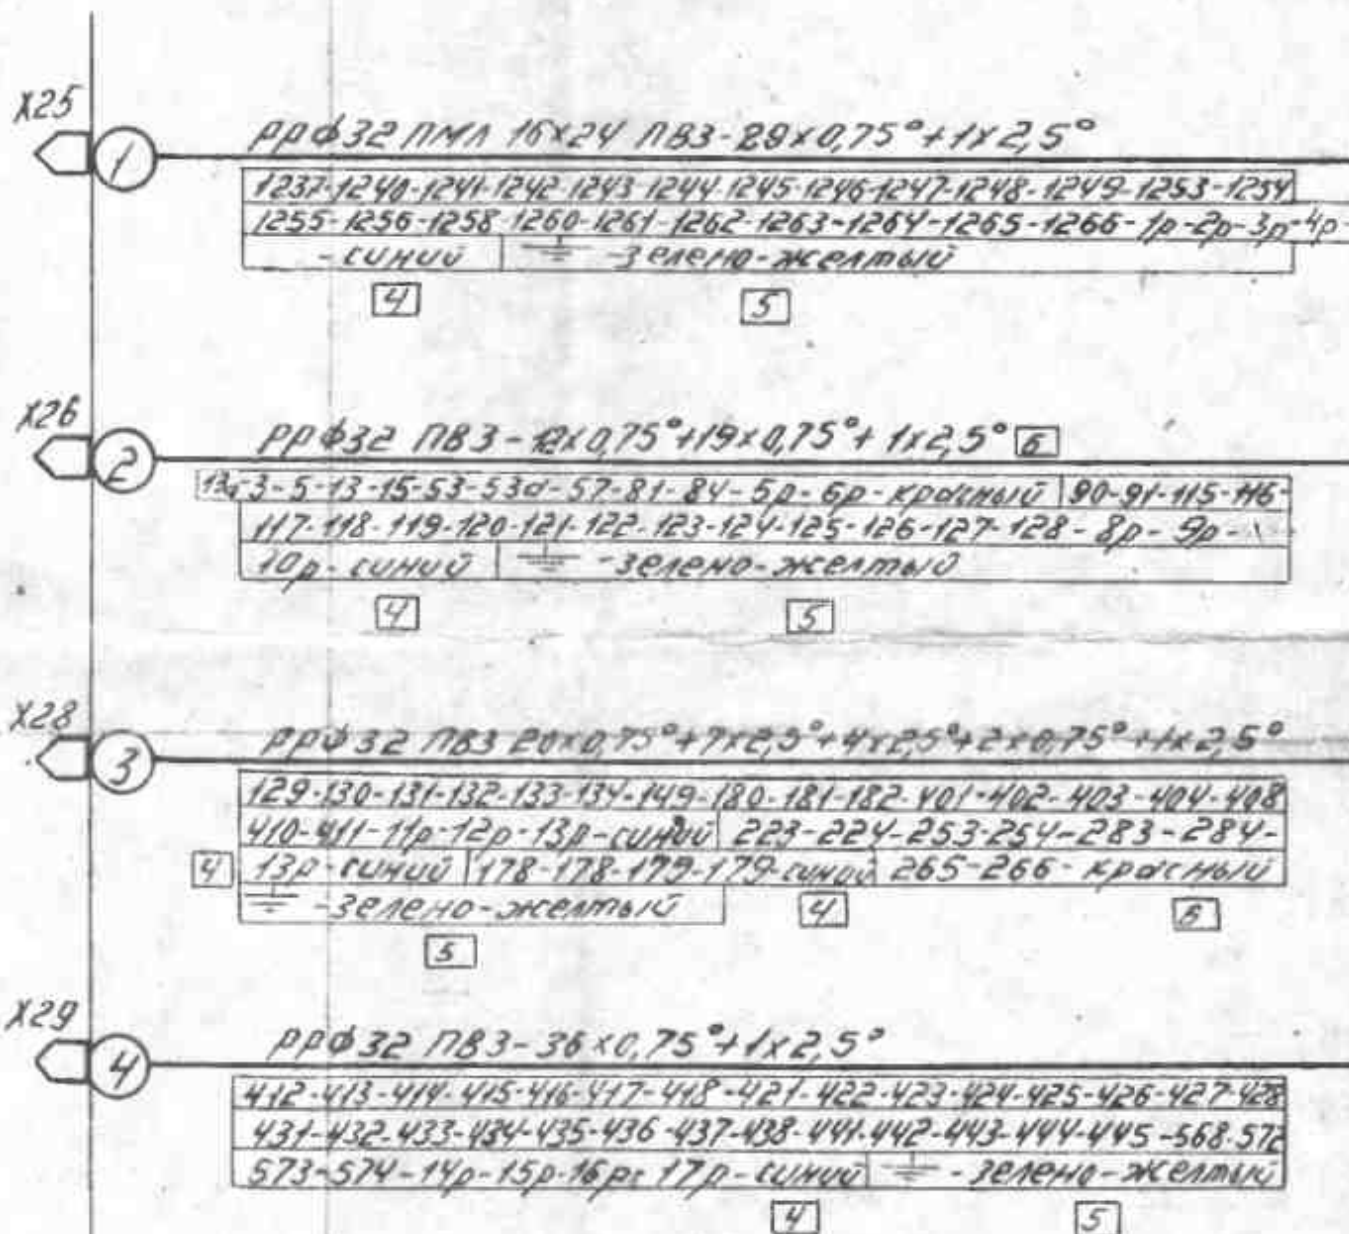 X25
1 РРФ32 ПМЛ 16x24 ПВ3-29x0,75°+1x2,5°
1237-1240-1241-1242-1243-1244-1245-1246-1247-1248-1249-1253-1254
1255-1256-1258 1260-1261-1262-1263-1264-1265-1266-1р-2р-3р-4р-
-синий ⏚ -зелено-желтый
4 5
X26
2 РРФ32 ПВ3-12x0,75°+19x0,75°+1x2,5° 6
13а-3-5-13-15-53-53а-57-81-84-5р-6р-красный 90-91-115-116-
117-118-119-120-121-122-123-124-125-126-127-128-8р-9р-
10р-синий ⏚ -зелено-желтый
4 5
X28
3 РРФ32 ПВ3 20x0,75°+7x2,5°+4x2,5°+2x0,75°+1x2,5°
129-130-131-132-133-134-149-180-181-182-401-402-403-404-408
410-411-11р-12р-13р-синий 223-224-253-254-283-284-
4 13р-синий 178-178-179-179-синий 265-266-красный
⏚ -зелено-желтый 4 6
5
X29
4 РРФ32 ПВ3-36x0,75°+1x2,5°
412-413-414-415-416-417-418-421-422-423-424-425-426-427-428
431-432-433-434-435-436-437-438-441-442-443-444-445-568-572
573-574-14р-15р-16р-17р-синий ⏚ -зелено-желтый
4 5